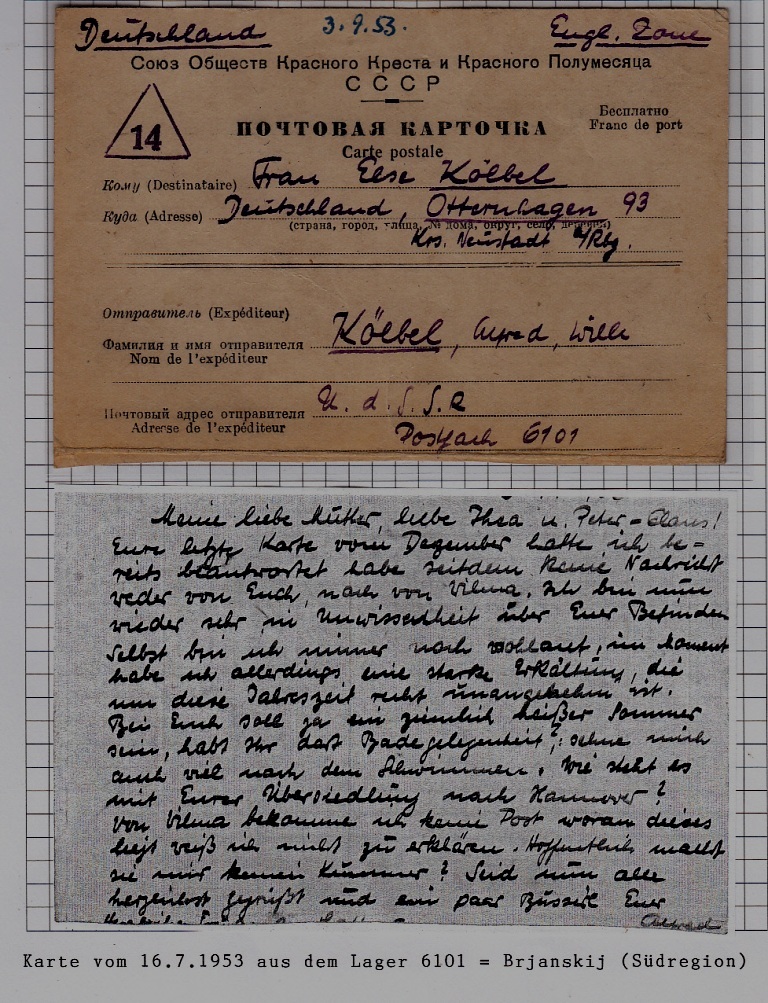 Deutschland 3.9.53. Engl. Zone
Союз Обществ Красного Креста и Красного Полумесяца
СССР
14
Бесплатно
Franc de port
ПОЧТОВАЯ КАРТОЧКА
Carte postale
Кому (Destinataire) Frau Else Kölbel
Куда (Adresse) Deutschland, Otternhagen 93
(страна, город, улица, № дома, округ, село, деревня)
Krs. Neustadt a/Rbg.
Отправитель (Expéditeur)
Фамилия и имя отправителя Kölbel, Alfred, Willi
Nom de l'expéditeur
U. d. S. S. R
Почтовый адрес отправителя
Adresse de l'expéditeur Postfach 6101
Meine liebe Mutter, liebe Thea u. Peter-Claus!
Eure letzte Karte vom Dezember hatte ich be-
reits beantwortet habe seitdem keine Nachricht
weder von Euch, noch von Vilma. Ich bin nun
wieder sehr in Unwissenheit über Euer Befinden
Selbst bin ich immer noch wohlauf, im Moment
habe ich allerdings eine starke Erkältung, die
um diese Jahreszeit recht unangenehm ist.
Bei Euch soll ja ein ziemlich heißer Sommer
sein, habt Ihr dort Badegelegenheit? sehne mich
auch viel nach dem Schwimmen. Wie steht es
mit Eurer Übersiedlung nach Hannover?
Von Vilma bekomme ich keine Post woran dieses
liegt weiß ich nicht zu erklären. Hoffentlich macht
sie mir keinen Kummer? Seid nun alle
herzlichst gegrüßt und ein paar Busserl Euer
Alfred
Karte vom 16.7.1953 aus dem Lager 6101 = Brjanskij (Südregion)